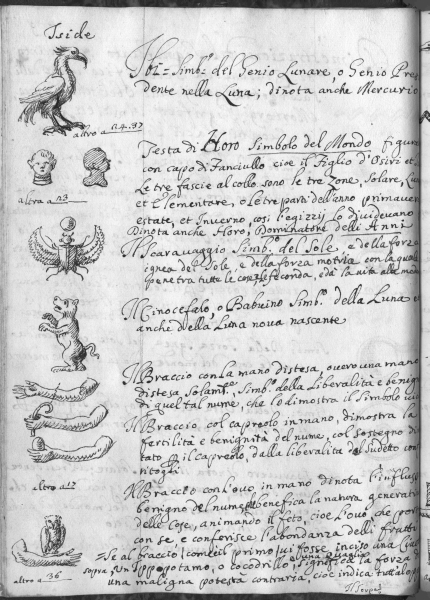 Iside
Ibi = Simb.º del Genio Lunare, o Genio Pres
dente nella Luna; dinota anche Mercurio
altro a n.4.37
Testa di Horo Simbolo del Mondo figura
con capo di Fanciullo cioe il Figlio d'Osiri et
Le tre fascie al collo sono le tre Zone, Solare, Lun
et Elementare, o le tre parti dell'anno primavera
estate, et Inverno, così l'egizzij lo dividevano
Dinota anche Horo, Dominatore delli Anni
altra a n3
Il Scaravaggio Simb.º del Sole, e della forza
ignea del Sole, e della forza motria con la quale
penetra tutte le cose feconda, e dà la vita alle
Il Cinocefalo, o Babuino Simb.º della Luna e
anche della Luna nova nascente
Il Braccio con la mano distesa, overo una mano
distesa solam.te Simb.º della Liberalità e benig
di quel tal nume, che lo dimostra il Simbolo
Il Braccio, col capreolo in mano, dimostra la
fertilità e benignità del nume, col sostegno di
tato il capreolo, dalla liberalità del sudetto
altro a 17
Il Braccio con l'ovo in mano dinota l'influsso
benigno del nume benefica la natura generat
delle cose, animando il feto, cioe l'ovo che por
con se, e conferisce l'abondanza delli frutti
Se al braccio come il primo vi fosse inciso una
sopra, un Ippopotamo, o cocodrillo, significa la forza d
altro a 36
una maligna potestà contraria, cioe indica tutt'al